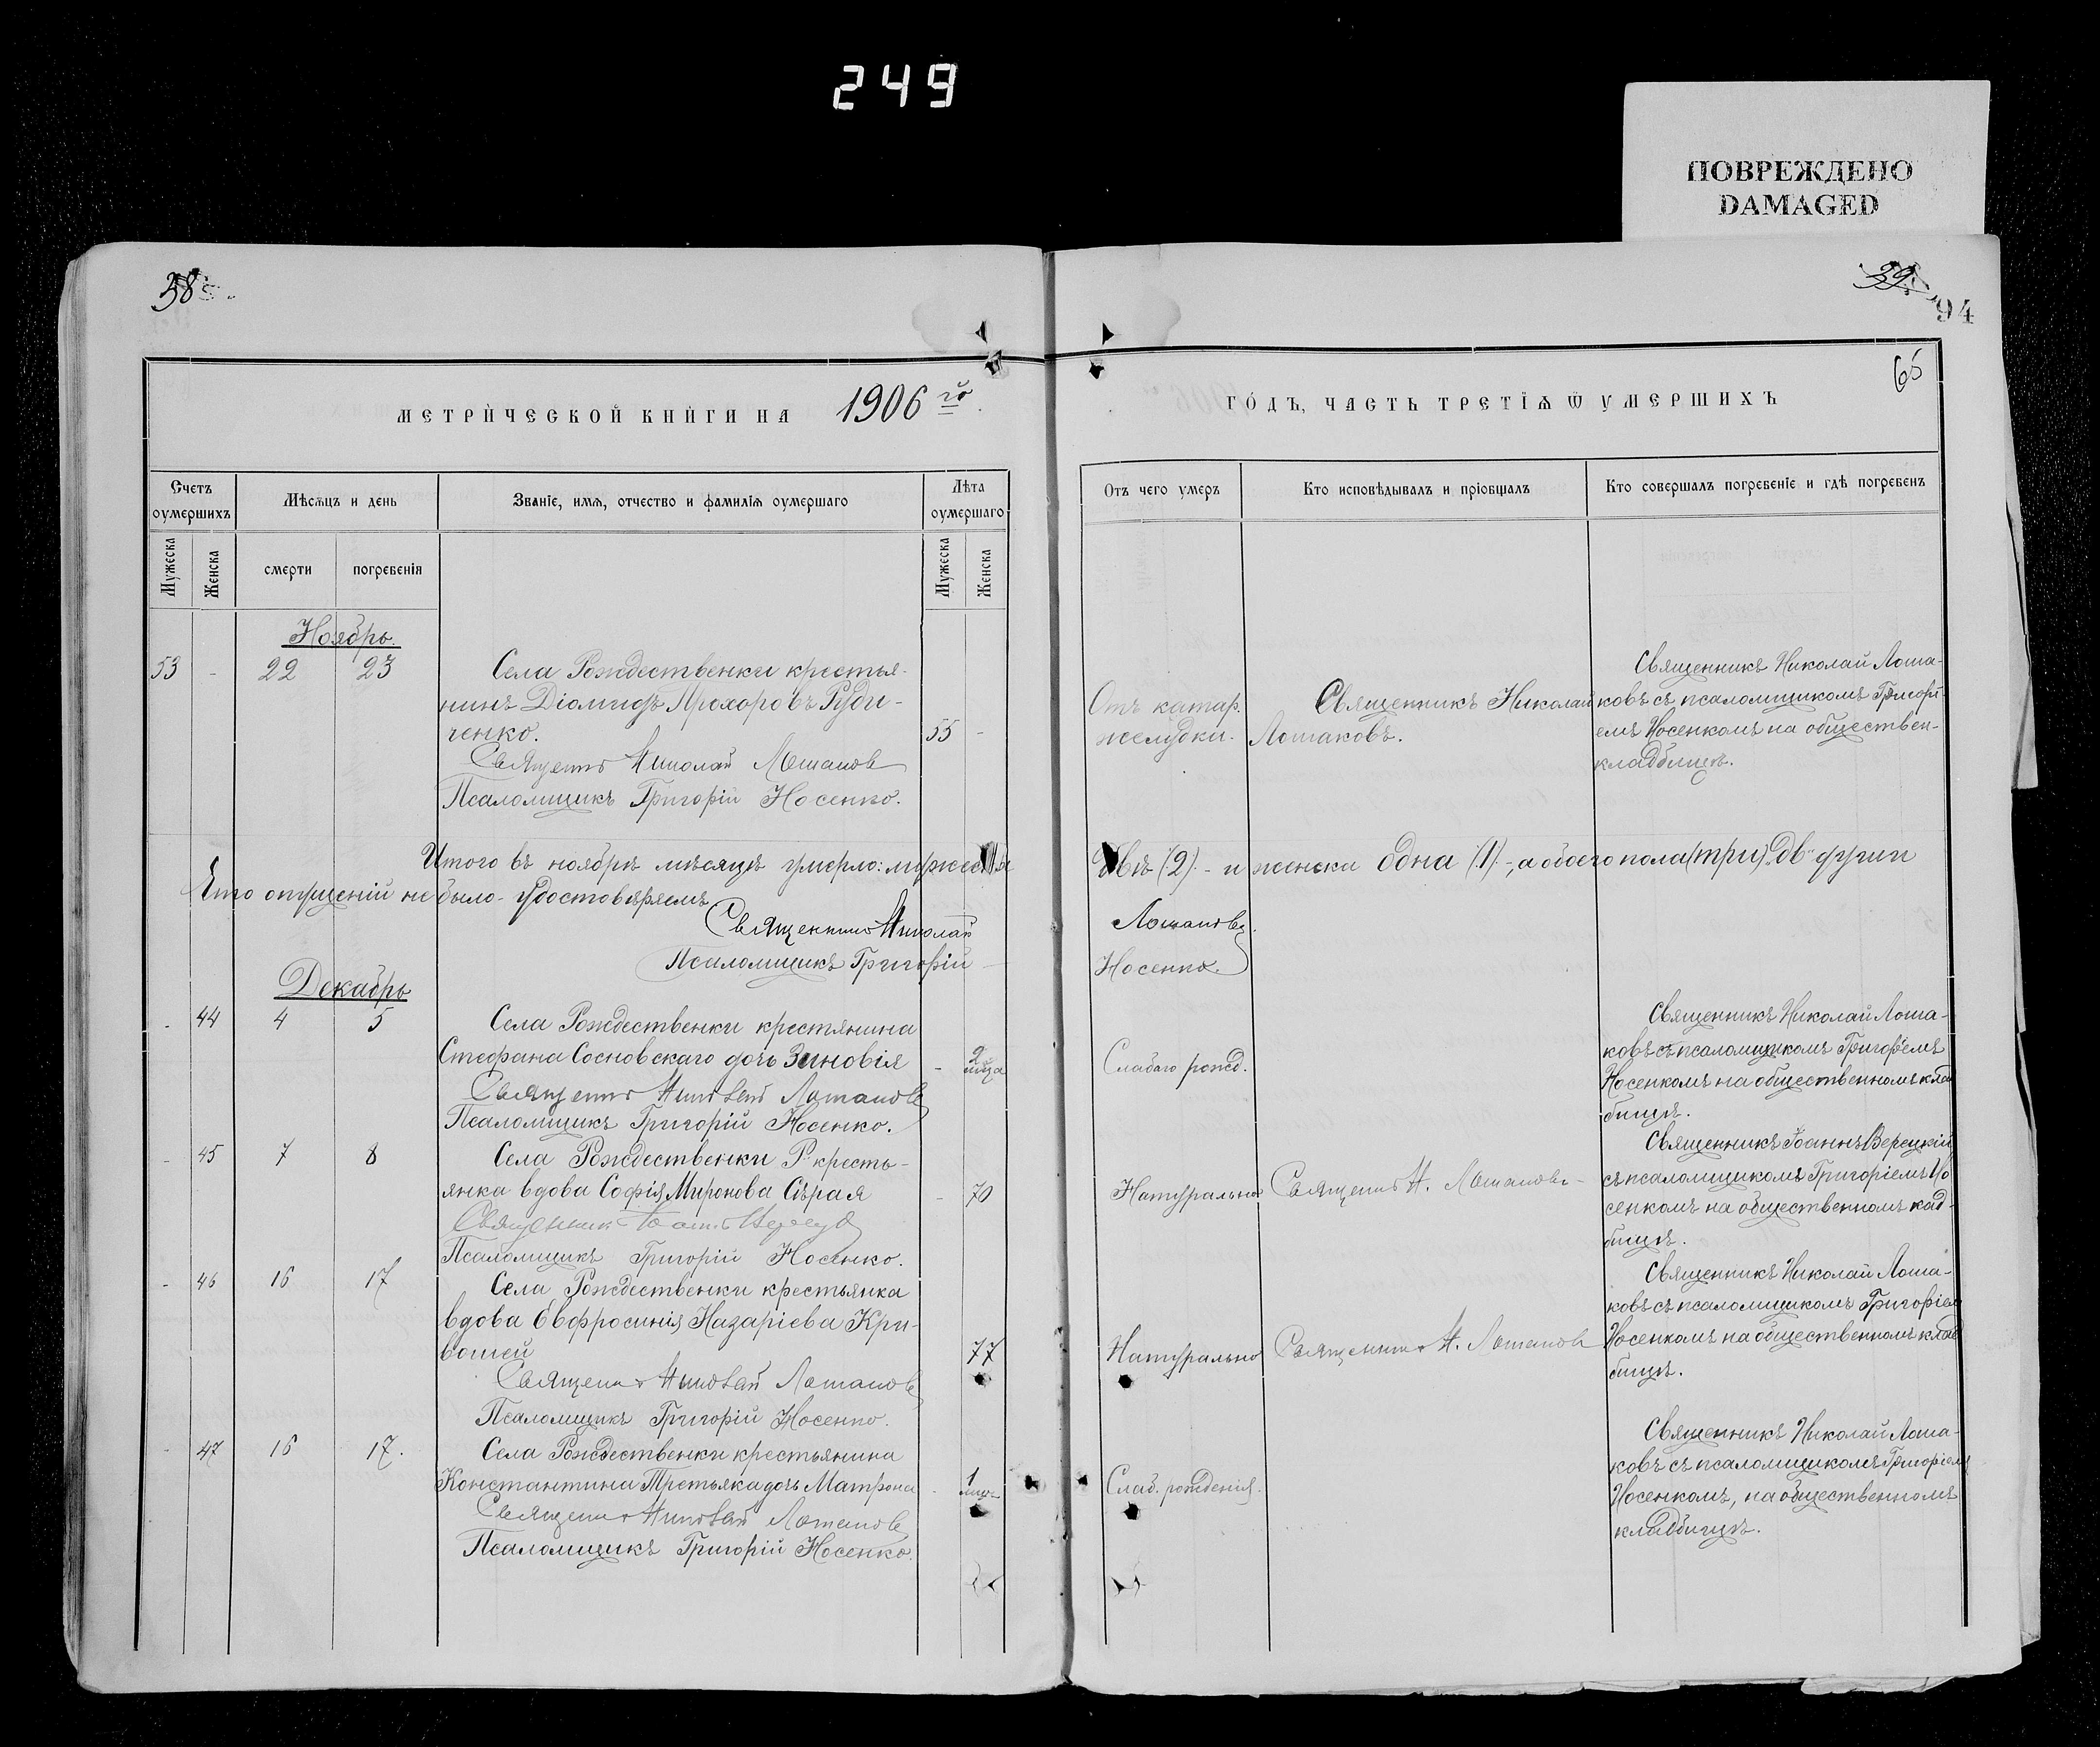 249
ПОВРЕЖДЕНО
DAMAGED
38
39
94
65
МЕТРИЧЕСКОЙ КНИГИ НА 1906 го
ГОДЪ, ЧАСТЬ ТРЕТІѦ Ѿ УМЕРШИХЪ
Счетъ оумершихъ
Мѣсѧцъ и день
Званіе, имѧ, отчество и фамиліѧ оумершаго
Лѣта оумершаго
Отъ чего умеръ
Кто исповѣдывалъ и пріобщалъ
Кто совершалъ погребеніе и гдѣ погребенъ
Мужеска
Женска
смерти
погребеніѧ
Мужеска
Женска
Ноябрь.
53 - 22 23
Села Рождественки крестья-
нинъ Діомидъ Прохоровъ Руди-
ченко.
55 -
Священникъ Николай Лошаковъ
Псаломщикъ Григорій Носенко.
Отъ катар.
желудки.
Священникъ Николай
Лошаковъ.
Священникъ Николай Лоша-
ковъ съ псаломщикомъ Григорі-
емъ Носенкомъ на обществен-
кладбищѣ.
Итого въ ноябрѣ мѣсяцѣ умерло: мужеска
двѣ (2) - и женска одна (1) -, а обоего пола (три)
Что опущеній не было - удостовѣряемъ
Священникъ Николай Лошаковъ.
Псаломщикъ Григорій Носенко.
Декабрь
- 44 4 5
Села Рождественки крестянина
Стефана Сосновскаго дочь Зиновія
- 2 мѣца
Священникъ Николай Лошаковъ
Псаломщикъ Григорій Носенко.
Слабаго рожд.
Священникъ Николай Лоша-
ковъ съ псаломщикомъ Григоріемъ
Носенкомъ на общественномъ клад
бищѣ.
- 45 7 8
Села Рождественки Р. кресть-
янка вдова Софія Миронова Сѣрая
- 70
Священникъ Іоаннъ Верецкій
Псаломщикъ Григорій Носенко.
Натурально
Священникъ Н. Лошаковъ -
Священникъ Іоаннъ Верецкій
съ псаломщикомъ Григоріемъ Но
сенкомъ на общественномъ кад-
бищѣ.
- 46 16 17
Села Рождественки крестьянка
вдова Евфросинія Назаріева Кри-
вошей
77
Священникъ Николай Лошаковъ
Псаломщикъ Григорій Носенко.
Натурально
Священникъ Н. Лошаковъ
Священникъ Николай Лоша-
ковъ съ псаломщикомъ Григоріем
Носенкомъ на общественномъ клад
бищѣ.
- 47 16 17.
Села Рождественки крестьянина
Константина Третьяка дочь Матрона
- 1
Священникъ Николай Лошаковъ
Псаломщикъ Григорій Носенко.
Слаб. рожденія.
Священникъ Николай Лоша-
ковъ съ псаломщикомъ Григоріем
Носенкомъ, на общественномъ
кладбищѣ.